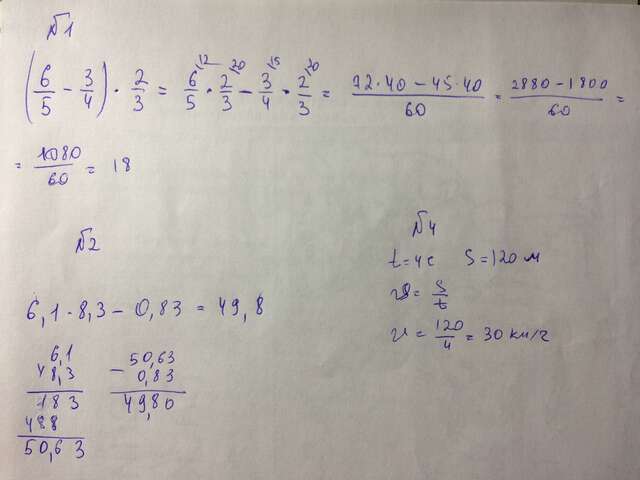 №1
(6/5 − 3/4) · 2/3 = 6/5 · 2/3 − 3/4 · 2/3 = (72·40 − 45·40)/60 = (2880 − 1800)/60 =
12 20 15 20
= 1080/60 = 18
№2
6,1 · 8,3 − 0,83 = 49,8
6,1
× 8,3
183
488
50,63
− 50,63
0,83
49,80
№4
t = 4 с S = 120 м
v = S/t
v = 120/4 = 30 км/г